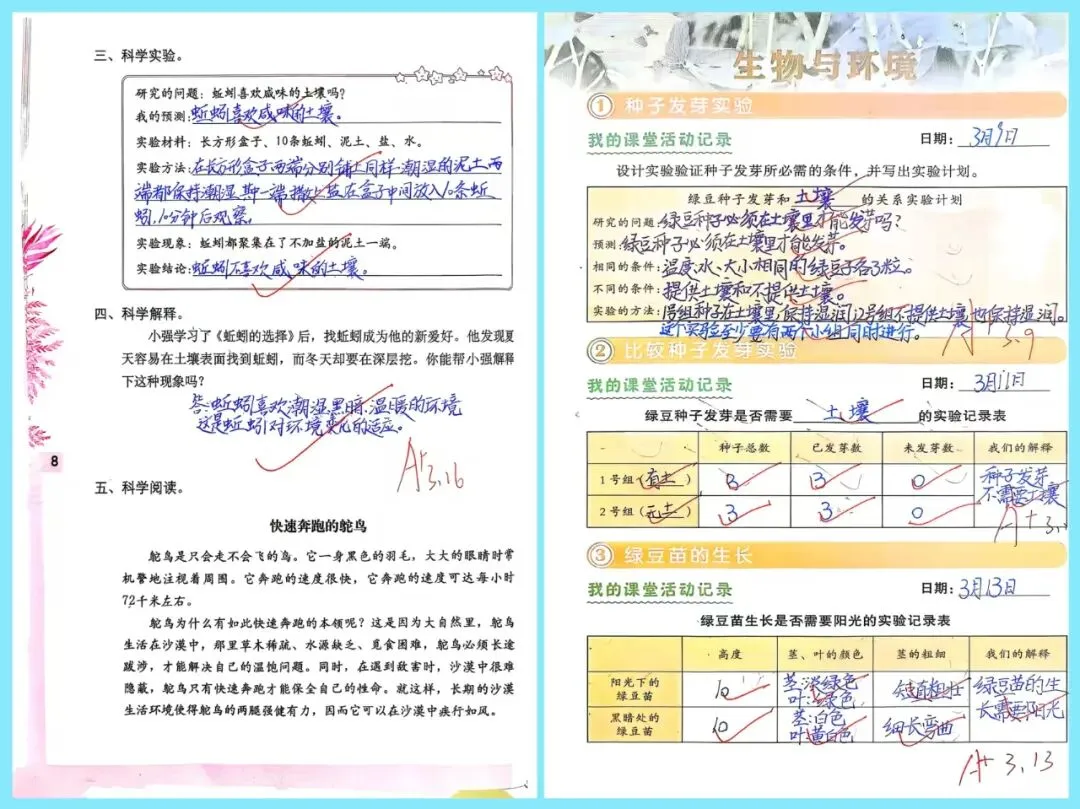 三、科学实验。
研究的问题：蚯蚓喜欢咸味的土壤吗？
我的预测：蚯蚓喜欢咸味的土壤。
实验材料：长方形盒子、10条蚯蚓、泥土、盐、水。
实验方法：在长方形盒子两端分别铺上同样潮湿的泥土,两
端都保持潮湿,其中一端撒上盐,在盒子中间放入10条蚯
蚓,10分钟后观察。
实验现象：蚯蚓都聚集在了不加盐的泥土一端。
实验结论：蚯蚓不喜欢咸味的土壤。
四、科学解释。
小强学习了《蚯蚓的选择》后，找蚯蚓成为他的新爱好。他发现夏
天容易在土壤表面找到蚯蚓，而冬天却要在深层挖。你能帮小强解释
下这种现象吗？
答:蚯蚓喜欢潮湿黑暗、温暖的环境
这是蚯蚓对环境变化的适应。
A+ 3.16
8
五、科学阅读。
快速奔跑的鸵鸟
鸵鸟是只会走不会飞的鸟。它一身黑色的羽毛，大大的眼睛时常
机警地注视着周围。它奔跑的速度很快，它奔跑的速度可达每小时
72千米左右。
鸵鸟为什么有如此快速奔跑的本领呢？这是因为大自然里，鸵鸟
生活在沙漠中，那里草木稀疏、水源缺乏、觅食困难，鸵鸟必须长途
跋涉，才能解决自己的温饱问题。同时，在遇到敌害时，沙漠中很难
隐蔽，鸵鸟只有快速奔跑才能保全自己的性命。就这样，长期的沙漠
生活环境使得鸵鸟的两腿强健有力，因而它可以在沙漠中疾行如风。
生物与环境
① 种子发芽实验
我的课堂活动记录 日期：3月9日
设计实验验证种子发芽所必需的条件，并写出实验计划。
绿豆种子发芽和 土壤 的关系实验计划
研究的问题：绿豆种子必须在土壤里才能发芽吗？
预测：绿豆种子必须在土壤里才能发芽。
相同的条件：温度、水、大小相同的绿豆子各3粒。
不同的条件：提供土壤和不提供土壤。
实验的方法：1号组种子在土壤里,保持湿润,2号组不提供土壤也保持湿润。
这个实验至少要有两个小组同时进行。
A+ 3.9
② 比较种子发芽实验
我的课堂活动记录 日期：3月11日
绿豆种子发芽是否需要 土壤 的实验记录表
种子总数 已发芽数 未发芽数 我们的解释
1号组（有土） 3 3 0 种子发芽
不需要土壤
2号组（无土） 3 3 0
A+ 3.
③ 绿豆苗的生长
我的课堂活动记录 日期：3月13日
绿豆苗生长是否需要阳光的实验记录表
高度 茎、叶的颜色 茎的粗细 我们的解释
阳光下的 茎:淡绿色
绿豆苗 10 叶:绿色 短直粗壮 绿豆苗的生
长需要阳光
黑暗处的 茎:白色
绿豆苗 10 叶黄白色 细长弯曲
A+ 3.13